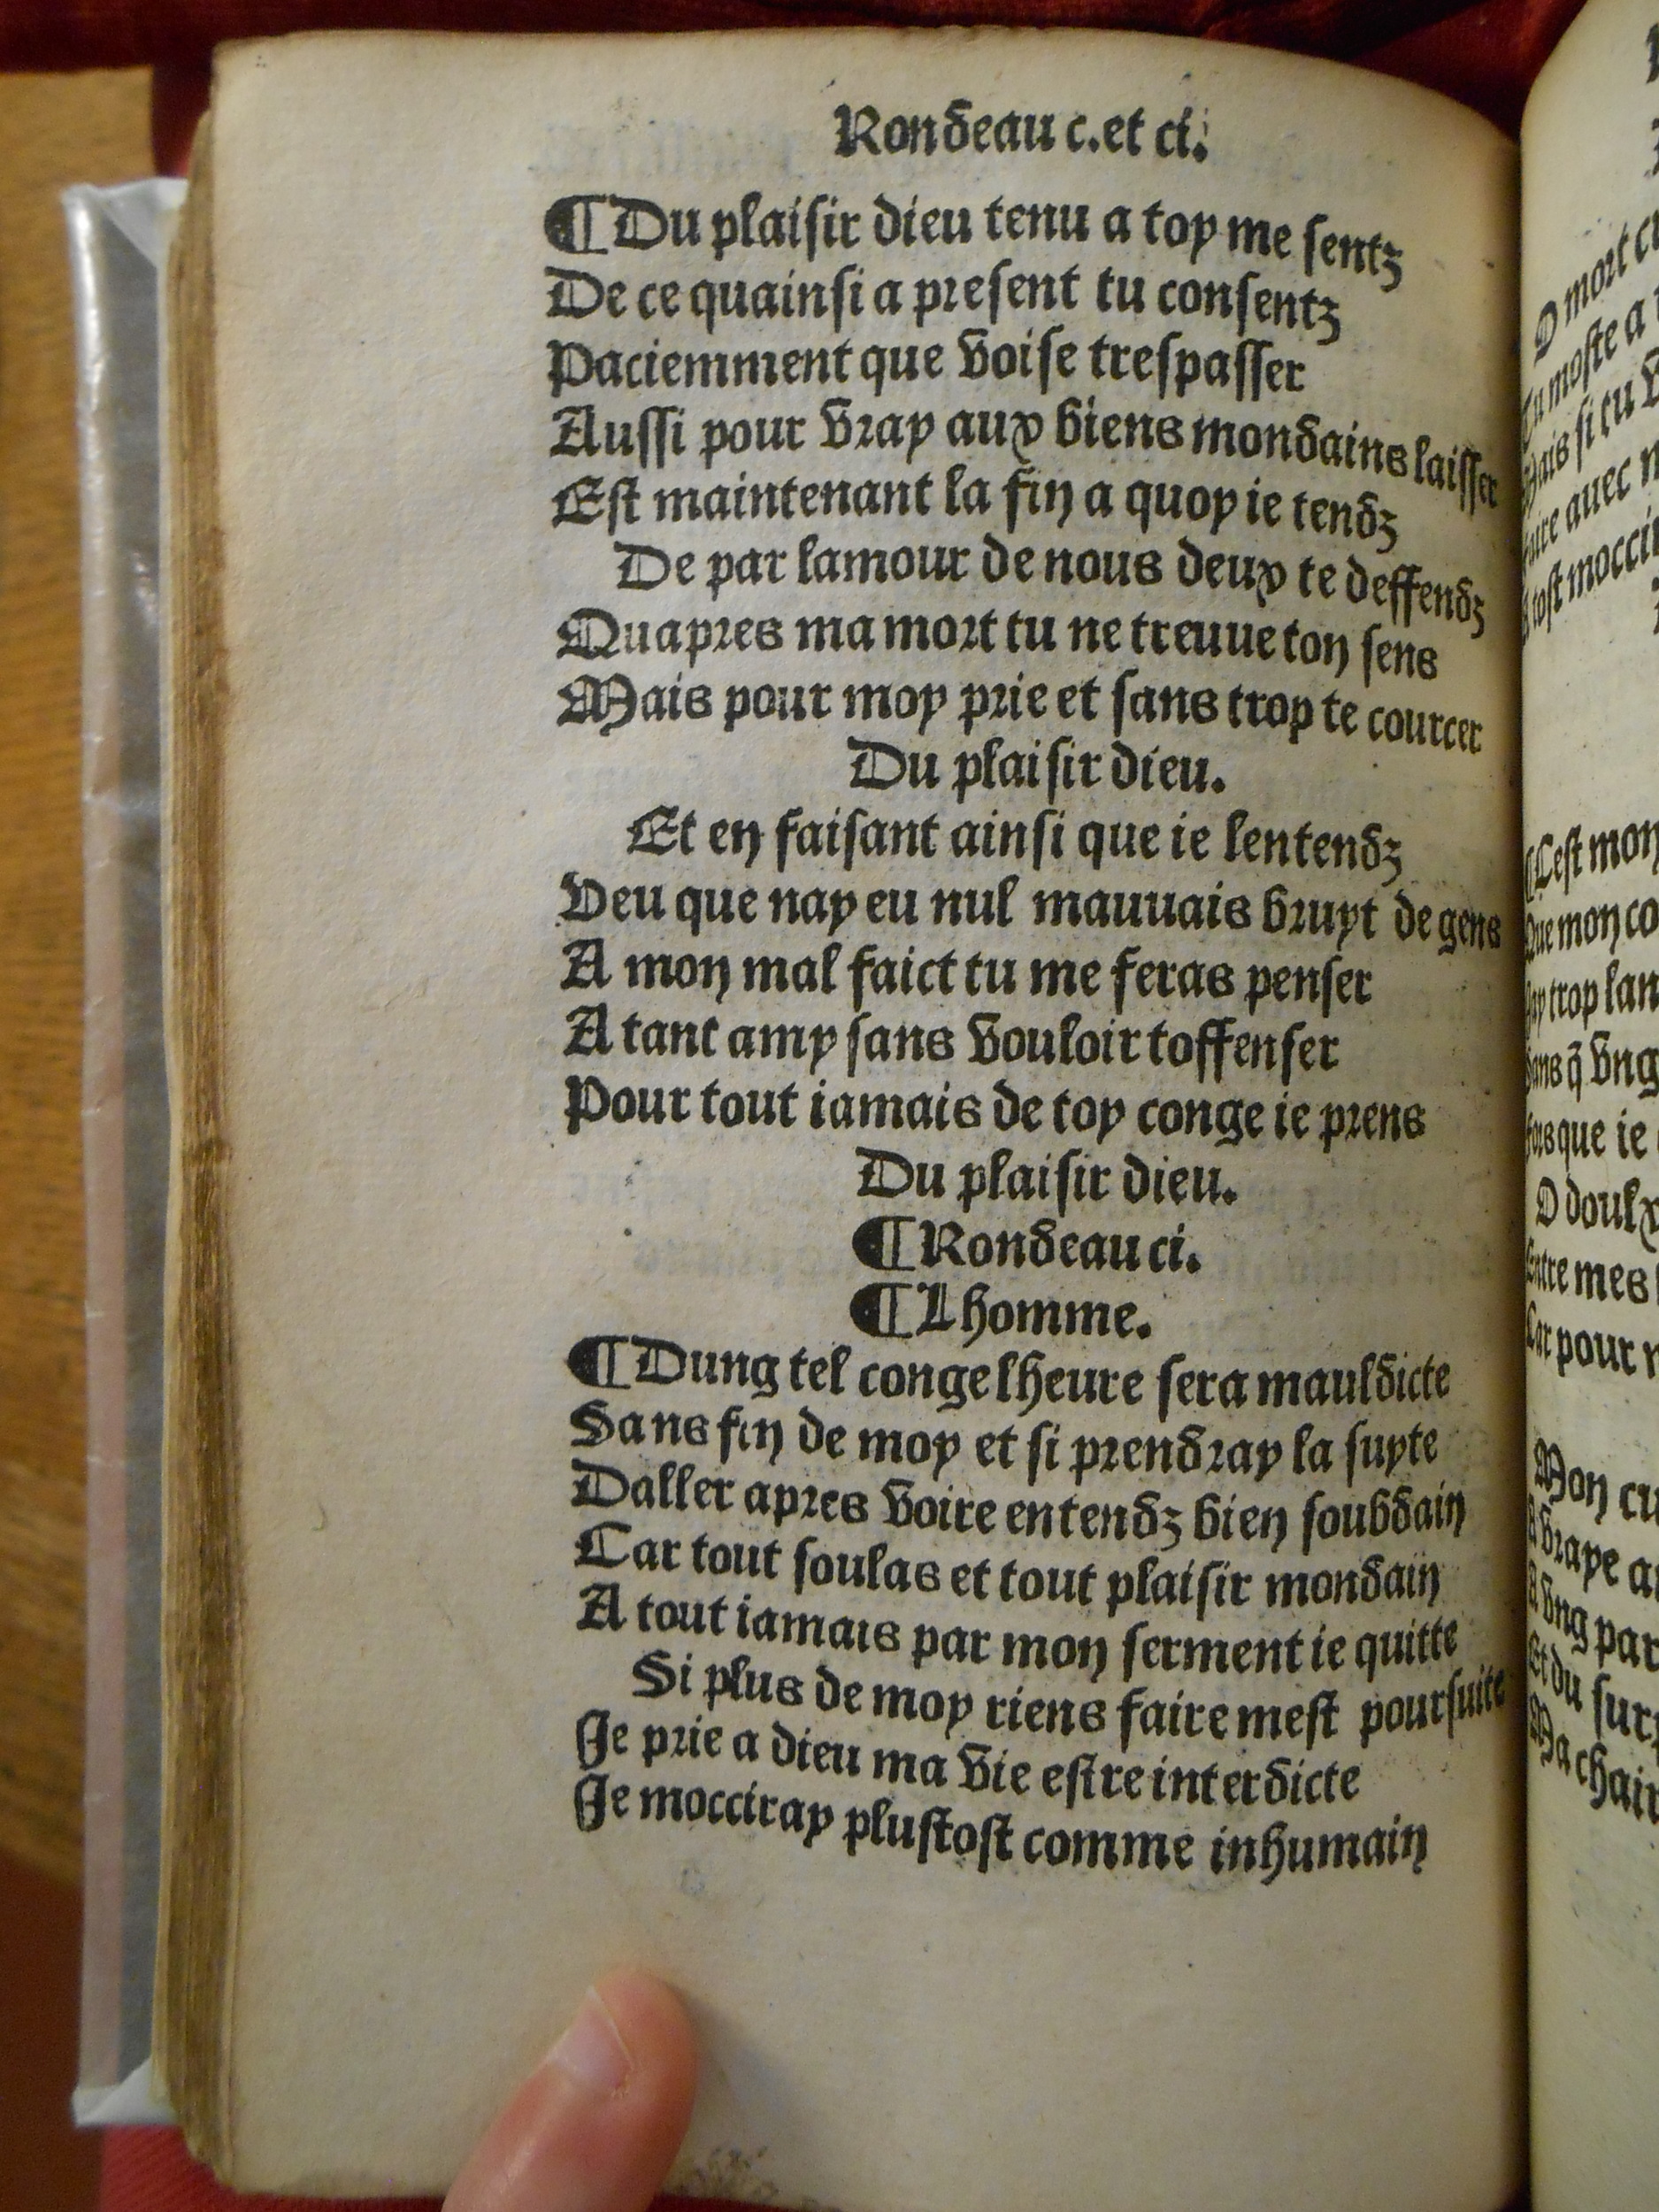 Rondeau c.et ci.
¶Du plaisir dieu tenu a toy me sentz
De ce quainsi a present tu consentz
Paciemment que voise trespasser
Aussi pour vray aux biens mondains laisser
Est maintenant la fin a quoy ie tendz
De par lamour de nous deux te deffendz
Quapres ma mort tu ne treuue ton sens
Mais pour moy prie et sans trop te courcer
Du plaisir dieu.
Et en faisant ainsi que ie lentendz
Veu que nay eu nul mauuais bruyt de gens
A mon mal faict tu me feras penser
A tant amy sans vouloir toffenser
Pour tout iamais de toy conge ie prens
Du plaisir dieu.
¶Rondeau ci.
¶Lhomme.
¶Dung tel conge lheure sera mauldicte
Sans fin de moy et si prendray la suyte
Daller apres voire entendz bien soubdain
Car tout soulas et tout plaisir mondain
A tout iamais par mon serment ie quitte
Si plus de moy riens faire mest poursuite
Je prie a dieu ma vie estre interdicte
Je mocciray plustost comme inhumain
O mort
moste a
si tu
auec
tost
¶Cest mon
Que mon
trop
q̄ vng
que ie
O doulx
mes
Car pour
Mon
vraye
vng par
Et du
Ma chair